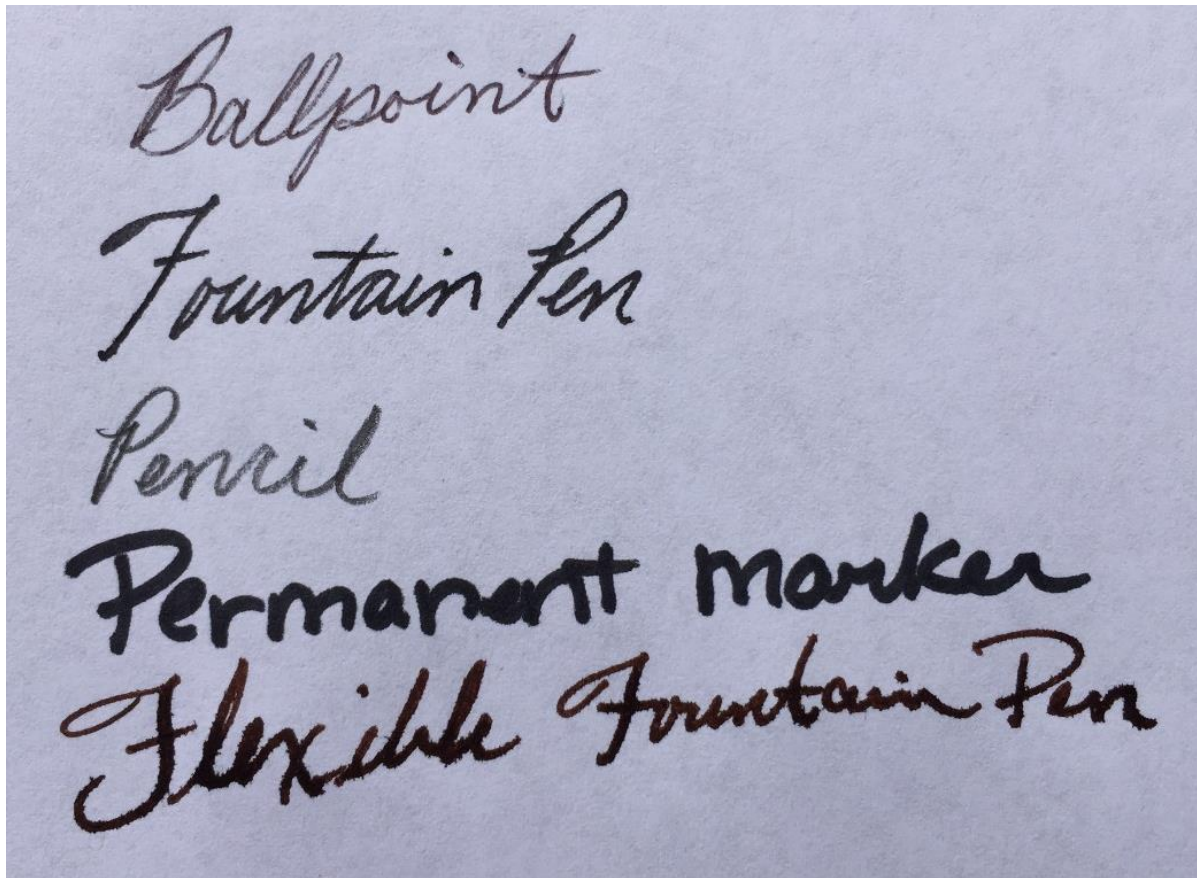 Ballpoint
Fountain Pen
Pencil
Permanent marker
Flexible Fountain Pen